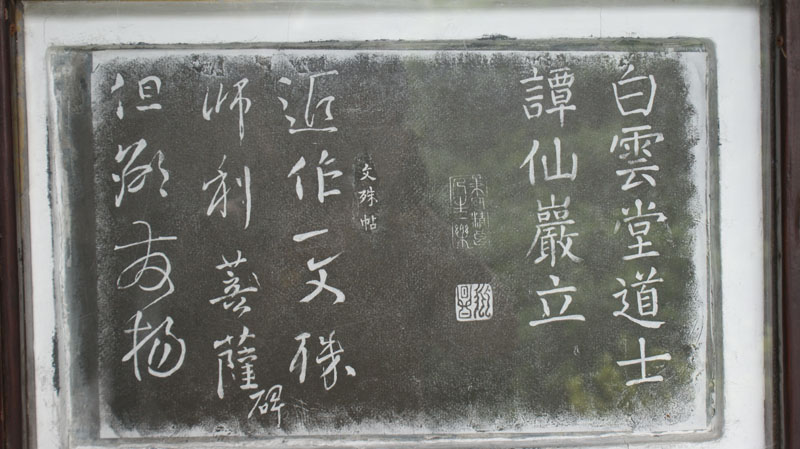 白雲堂道士
譚仙巖立
文殊帖
近作一文殊
師利菩薩碑
但欲發揚